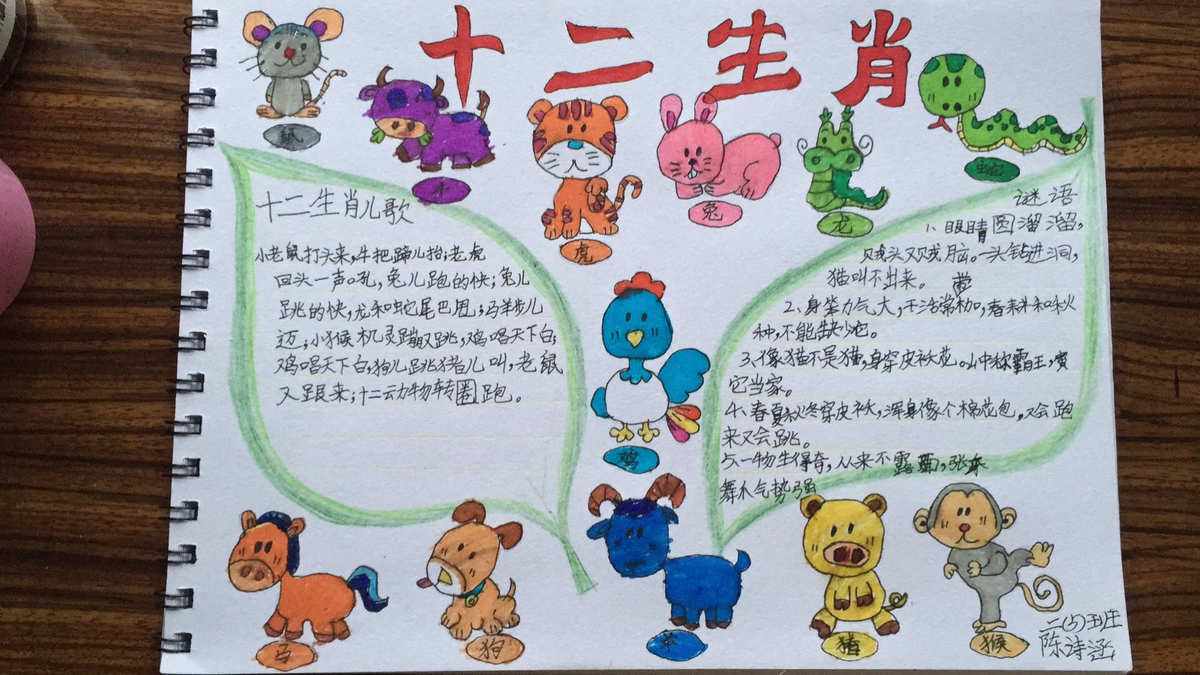 十二生肖
鼠
牛
虎
兔
龙
蛇
十二生肖儿歌
小老鼠打头来,牛把蹄儿抬;老虎
回头一声吼,兔儿跑的快;兔儿
跳的快,龙和蛇尾巴甩;马羊步儿
迈;小猴机灵蹦又跳,鸡唱天下白;
鸡唱天下白,狗儿跳猪儿叫,老鼠
又跟来;十二动物转圈跑。
谜语
1、眼睛圆溜溜,
贼头又贼脑。一头钻进洞,
猫叫不出来。
2、身笨力气大,干活常加,春耕和秋
种,不能缺少它。
3、像猫不是猫,身穿皮袄花。山中称霸王,
它当家。
4、春夏秋冬穿皮袄,浑身像个棉花包,又会跑
来又会跳。
5、一物生得奇,从来不露面,张
舞爪气势强
鸡
马
狗
羊
猪
猴
二(5)班
陈诗涵